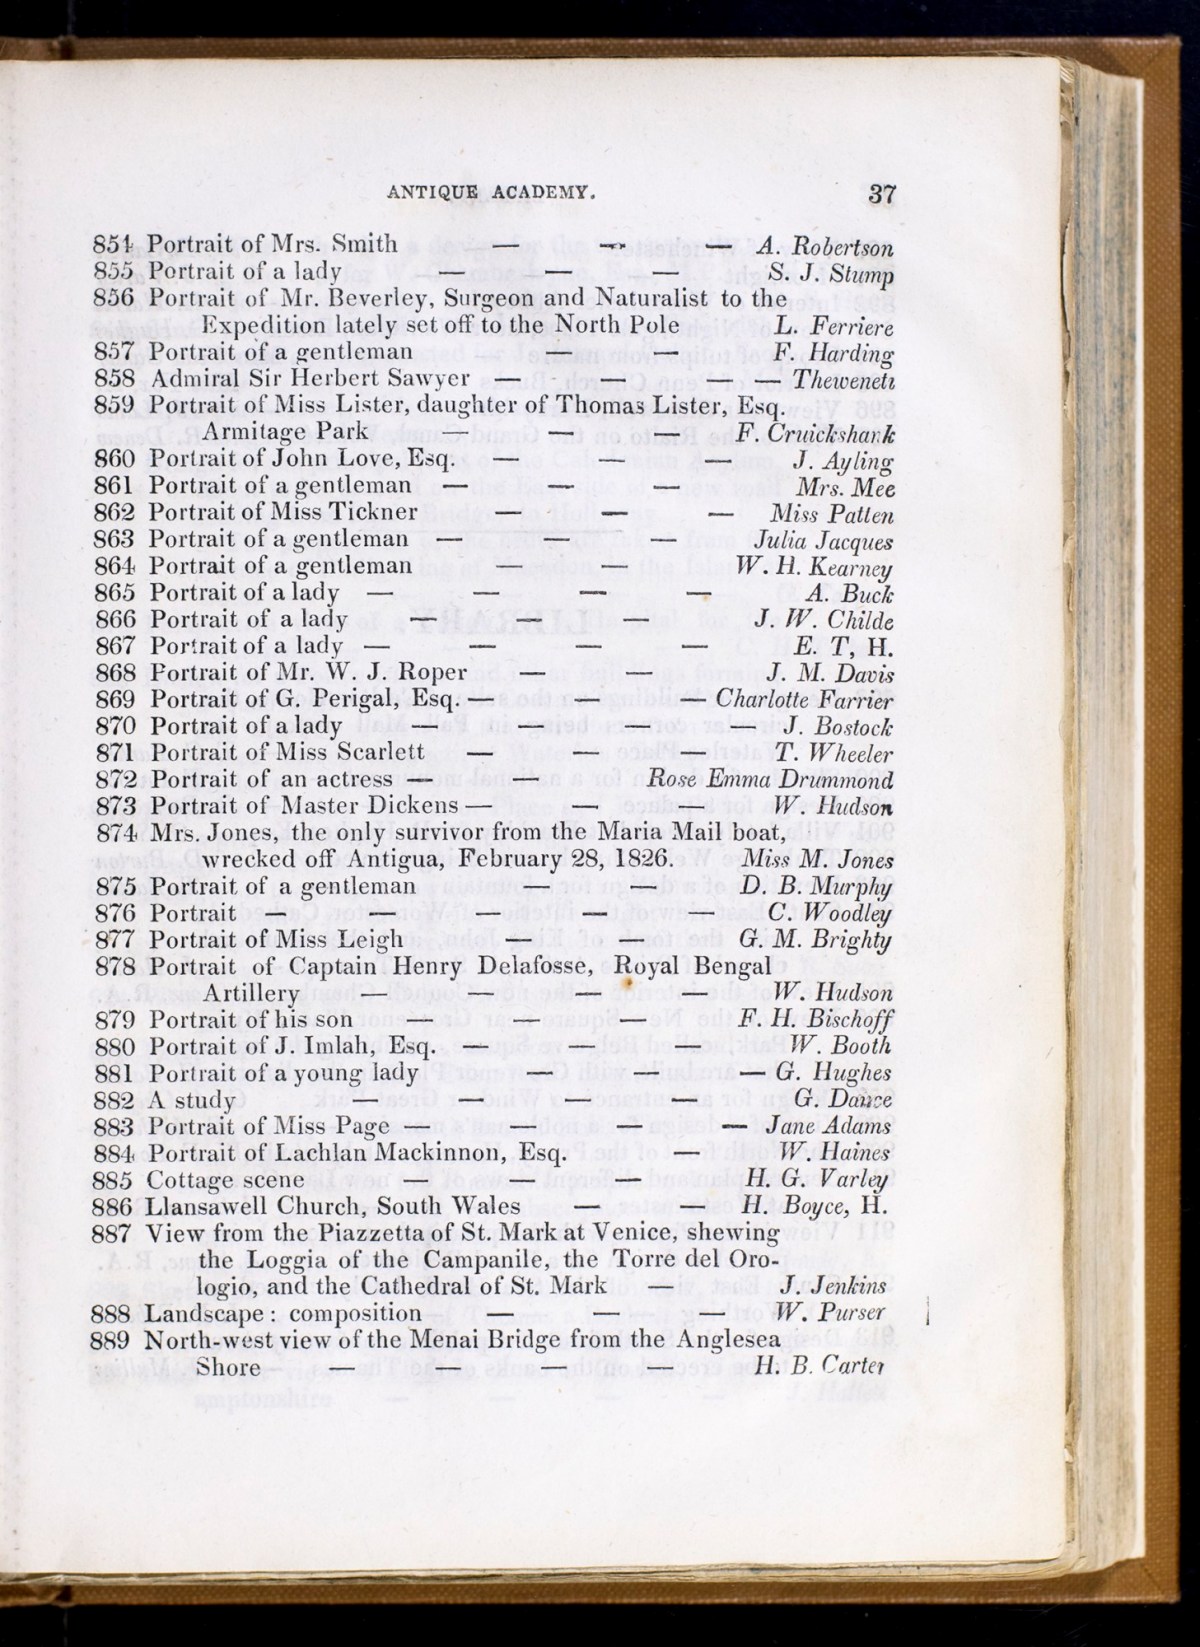 ANTIQUE ACADEMY. 37
854 Portrait of Mrs. Smith — — — A. Robertson
855 Portrait of a lady — — — S. J. Stump
856 Portrait of Mr. Beverley, Surgeon and Naturalist to the
Expedition lately set off to the North Pole L. Ferriere
857 Portrait of a gentleman — — F. Harding
858 Admiral Sir Herbert Sawyer — — — Theweneti
859 Portrait of Miss Lister, daughter of Thomas Lister, Esq.
Armitage Park — — — F. Cruickshank
860 Portrait of John Love, Esq. — — — J. Ayling
861 Portrait of a gentleman — — — Mrs. Mee
862 Portrait of Miss Tickner — — — Miss Patten
863 Portrait of a gentleman — — — Julia Jacques
864 Portrait of a gentleman — — W. H. Kearney
865 Portrait of a lady — — — — A. Buck
866 Portrait of a lady — — — J. W. Childe
867 Portrait of a lady — — — — E. T, H.
868 Portrait of Mr. W. J. Roper — — J. M. Davis
869 Portrait of G. Perigal, Esq. — — — Charlotte Farrier
870 Portrait of a lady — — — — J. Bostock
871 Portrait of Miss Scarlett — — — T. Wheeler
872 Portrait of an actress — — Rose Emma Drummond
873 Portrait of Master Dickens — — — W. Hudson
874 Mrs. Jones, the only survivor from the Maria Mail boat,
wrecked off Antigua, February 28, 1826. Miss M. Jones
875 Portrait of a gentleman — — D. B. Murphy
876 Portrait — — — — C. Woodley
877 Portrait of Miss Leigh — — G. M. Brighty
878 Portrait of Captain Henry Delafosse, Royal Bengal
Artillery — — — — W. Hudson
879 Portrait of his son — — — F. H. Bischoff
880 Portrait of J. Imlah, Esq. — — — W. Booth
881 Portrait of a young lady — — — G. Hughes
882 A study — — — — G. Dance
883 Portrait of Miss Page — — — — Jane Adams
884 Portrait of Lachlan Mackinnon, Esq. — W. Haines
885 Cottage scene — — — H. G. Varley
886 Llansawell Church, South Wales — — H. Boyce, H.
887 View from the Piazzetta of St. Mark at Venice, shewing
the Loggia of the Campanile, the Torre del Oro-
logio, and the Cathedral of St. Mark — J. Jenkins
888 Landscape : composition — — — W. Purser
889 North-west view of the Menai Bridge from the Anglesea
Shore — — — — H. B. Carter